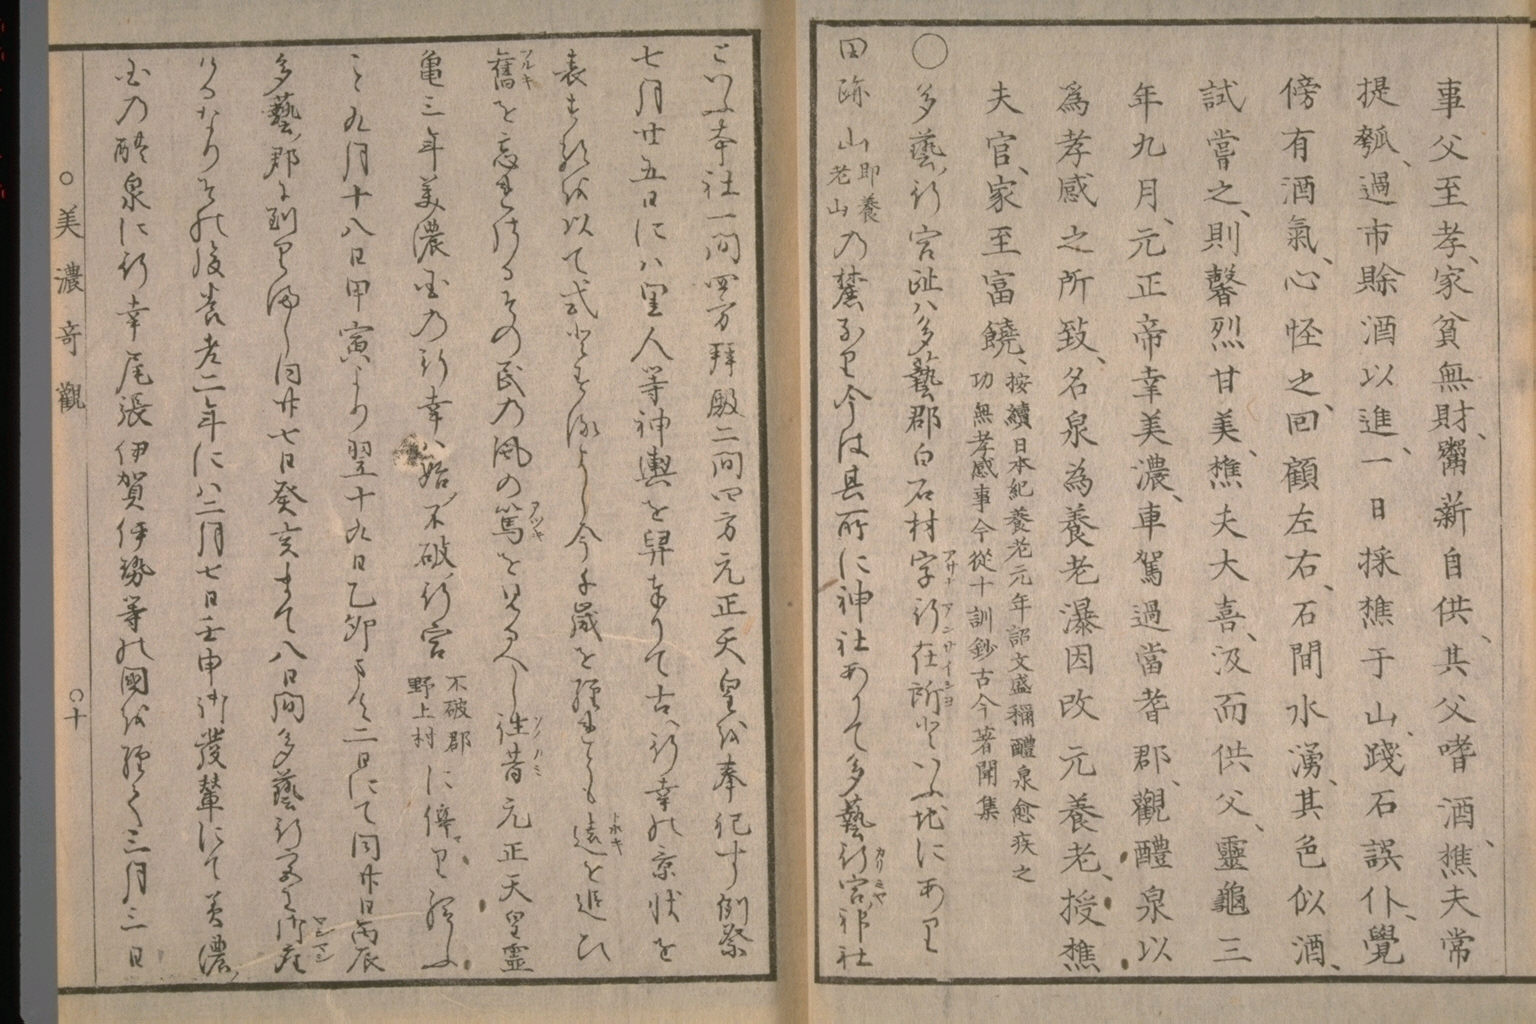 事父至孝、家貧無財、鬻薪自供、其父嗜酒、樵夫常
提瓢、過市賒酒以進、一日採樵于山、踐石誤仆、覺
傍有酒氣、心怪之、回顧左右、石間水湧、其色似酒、
試嘗之、則馨烈甘美、樵夫大喜、汲而供父、靈龜三
年九月、元正帝幸美濃、車駕過當耆郡、觀醴泉以
爲孝感之所致、名泉為養老瀑因改元養老、授樵
夫官、家至富饒、按續日本紀養老元年詔文盛稱醴泉愈疾之
功無孝感事今從十訓鈔古今著聞集
○多藝行宮趾ハ多藝郡白石村字行在所といふ地にあり
田跡山即養老山乃麓なり今は其所に神社ありて多藝行宮神社
といふ本社一間四方拜殿二間四方元正天皇を奉祀す例祭
七月廿五日にハ里人等神輿を舁ありて古行幸の京状を
表する
を以て式とするよし今千歳を經るとも遠を追ひ
舊を忘れさるその民乃風の篤を見るへし往昔元正天皇霊
亀三年美濃國乃行幸ハ始不破行宮不破郡野上村に
り給ふ
こと九月十八日甲寅より翌十九日乙卯まて二日にて同廿日丙辰
多藝郡に到りまし同廿七日癸亥まて八日間多藝行宮に御座
けるなりその後養老二年にハ二月七日壬申御發輦にて美濃
國乃醴泉に行幸尾張伊賀伊勢等の國を經て三月三日
○美濃奇觀
○十